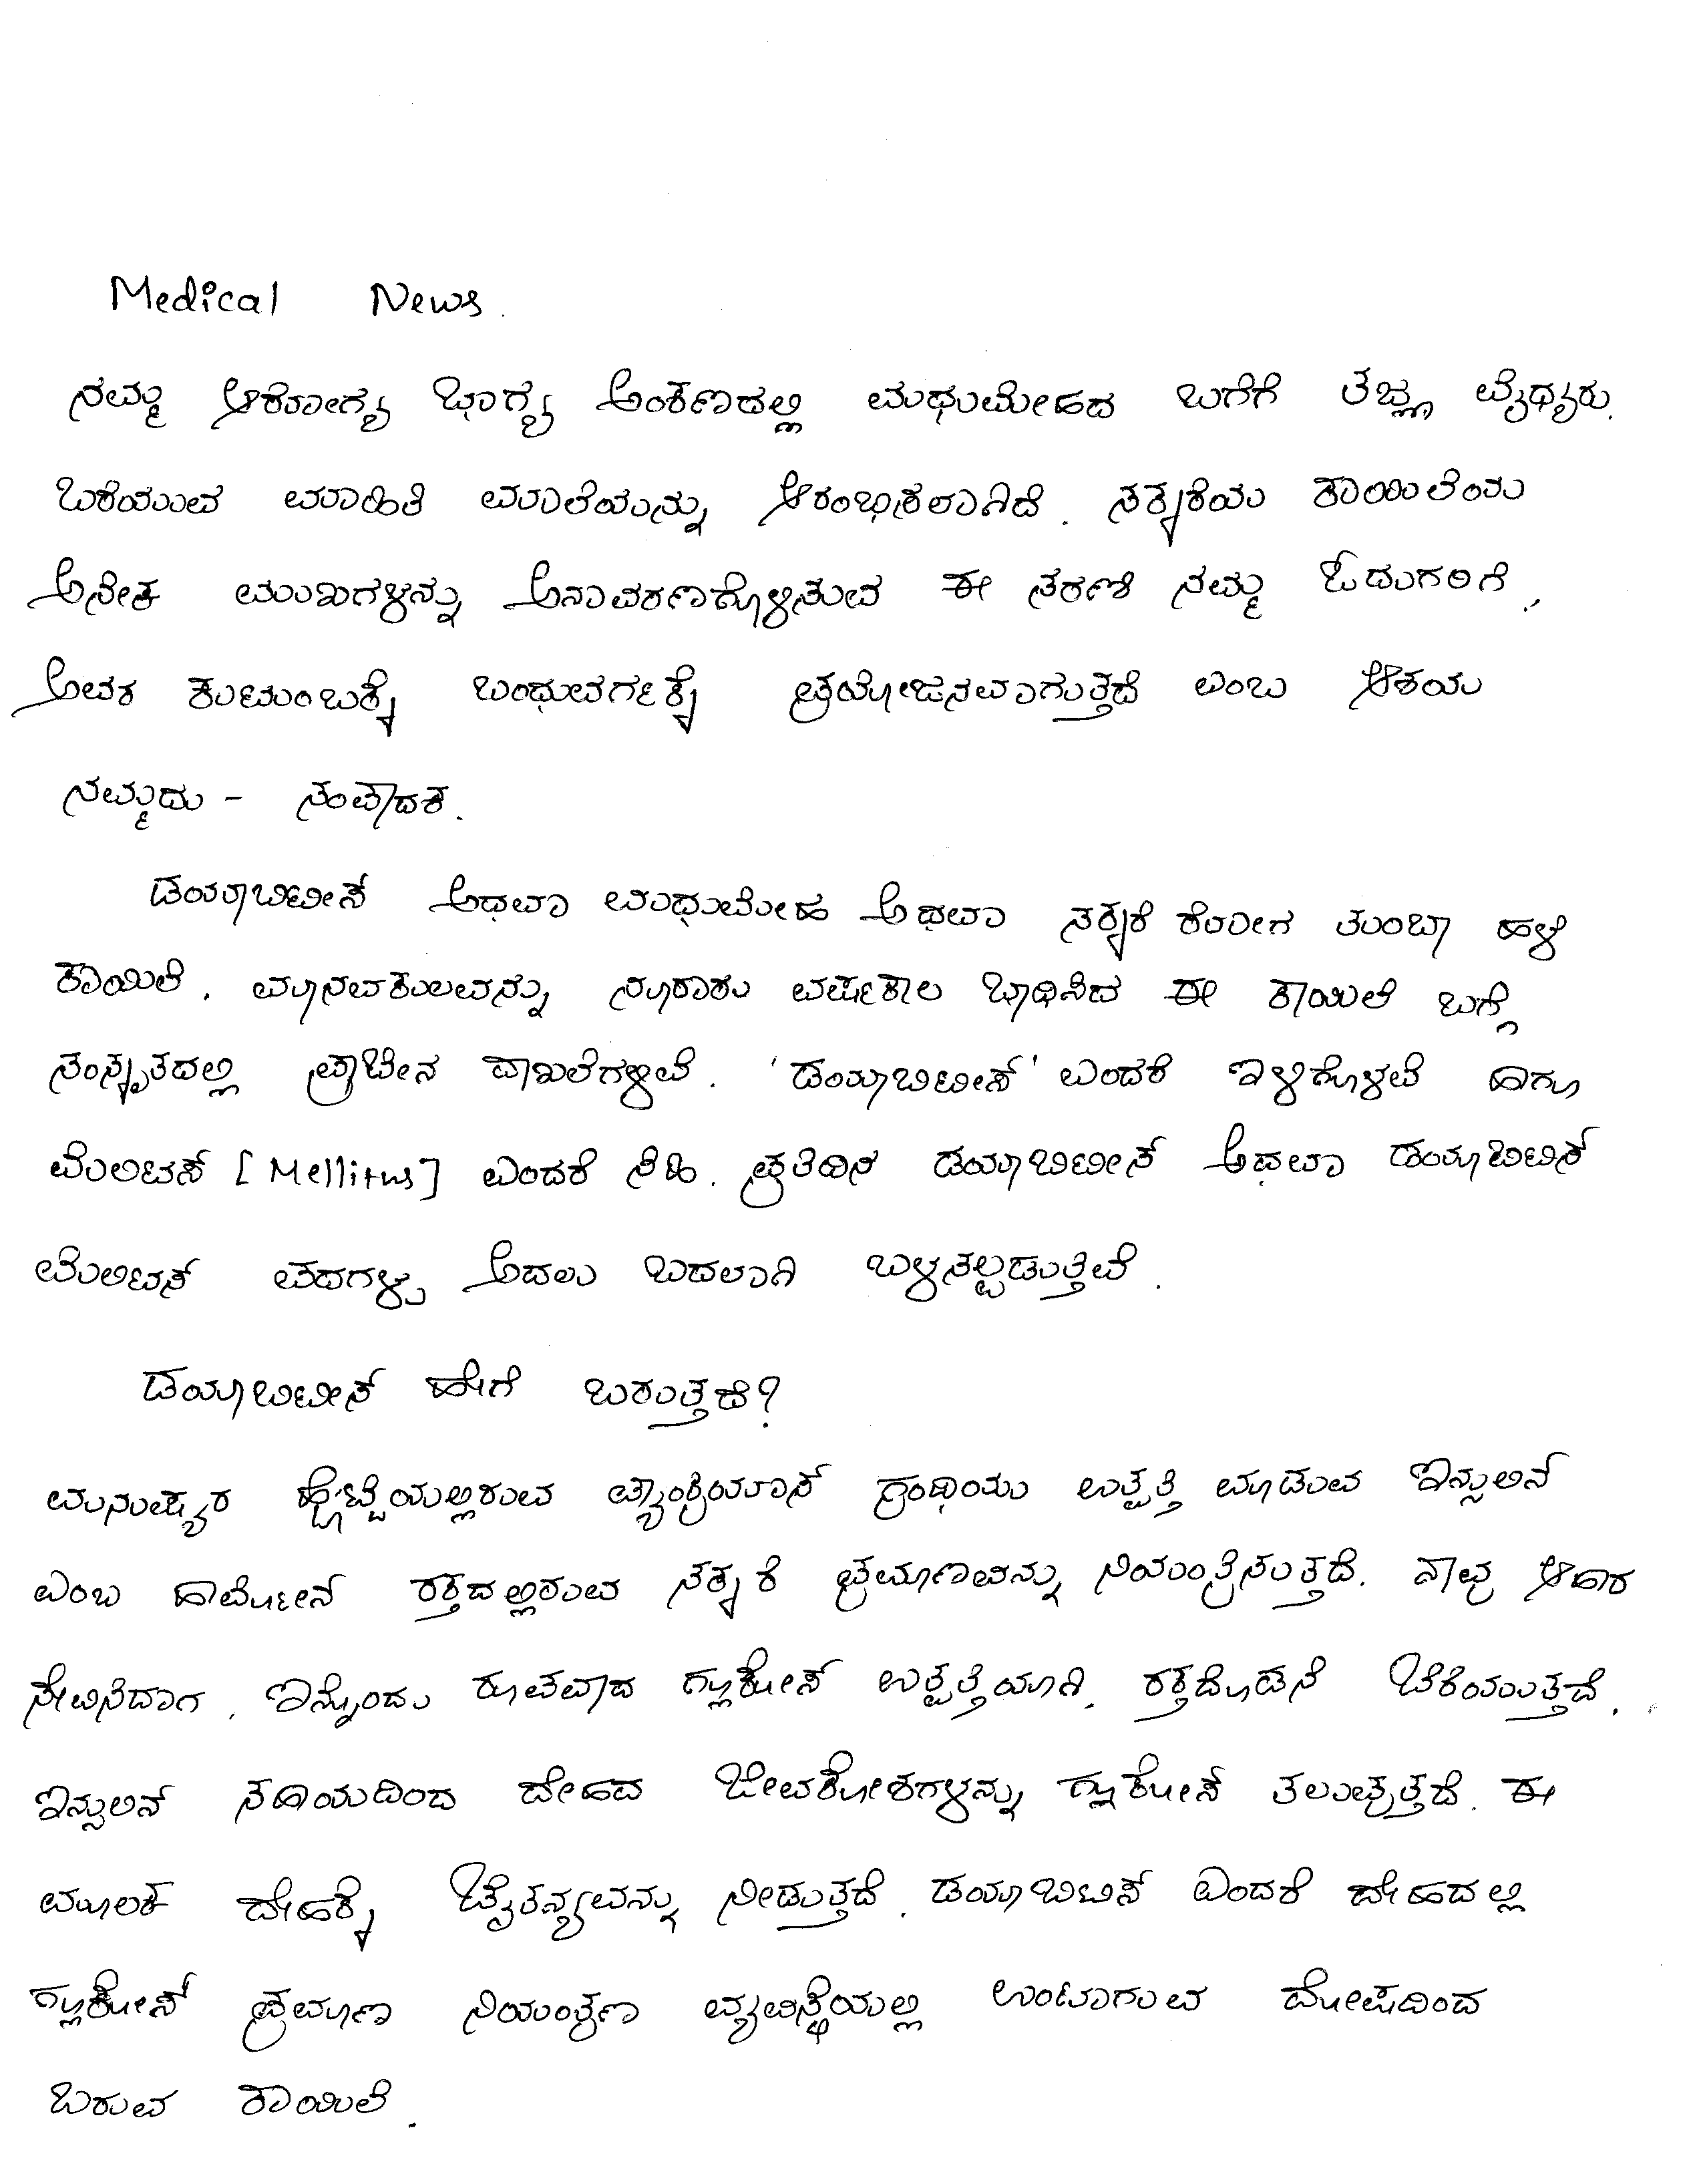 Medical News.
ನಮ್ಮ ಆರೋಗ್ಯ ಭಾಗ್ಯ ಅಂಕಣದಲ್ಲಿ ಮಧುಮೇಹದ ಬಗೆಗೆ ತಜ್ಞ ವೈಧ್ಯರು.
ಬರೆಯುವ ಮಾಹಿತಿ ಮಾಲೆಯನ್ನು ಆರಂಭಿಸಲಾಗಿದೆ. ಸಕ್ಕರೆಯ ಕಾಯಿಲೆಯ
ಅನೇಕ ಮುಖಗಳನ್ನು ಅನಾವರಣಗೊಳಿಸುವ ಈ ಸರಣಿ ನಮ್ಮ ಓದುಗರಿಗೆ,
ಅವರ ಕುಟುಂಬಕ್ಕೆ ಬಂಧುವರ್ಗಕ್ಕೆ ಪ್ರಯೋಜನವಾಗುತ್ತದೆ ಎಂಬ ಆಶಯ
ನಮ್ಮದು - ಸಂಪಾದಕ.
ಡಯಾಬಿಟೀಸ್ ಅಥವಾ ಮಧುಮೇಹ ಅಥವಾ ಸಕ್ಕರೆ ರೋಗ ತುಂಬಾ ಹಳೆ
ಕಾಯಿಲೆ. ಮಾನವಕುಲವನ್ನು ನೂರಾರು ವರ್ಷಕಾಲ ಭಾಧಿಸಿದ ಈ ಕಾಯಿಲೆ ಬಗ್ಗೆ
ಸಂಸ್ಕೃತದಲ್ಲಿ ಪ್ರಾಚೀನ ದಾಖಲೆಗಳಿವೆ. 'ಡಯಾಬಿಟೀಸ್' ಎಂದರೆ ಇಳಿಗೊಳವೆ ಹಾಗೂ
ಮೆಲಿಟಸ್ [Mellitus] ಎಂದರೆ ಸಿಹಿ. ಪ್ರತಿದಿನ ಡಯಾಬಿಟೀಸ್ ಅಥವಾ ಡಯಾಬಿಟಿಸ್
ಮೆಲಿಟಸ್ ಪದಗಳು ಅದಲು ಬದಲಾಗಿ ಬಳಸಲ್ಪಡುತ್ತಿವೆ.
ಡಯಾಬಿಟೀಸ್ ಹೇಗೆ ಬರುತ್ತದೆ?
ಮನುಷ್ಯರ ಹೊಟ್ಟೆಯಲ್ಲಿರುವ ಪ್ಯಾಂಕ್ರಿಯಾಸ್ ಗ್ರಂಥಿಯು ಉತ್ಪತ್ತಿ ಮಾಡುವ ಇನ್ಸುಲಿನ್
ಎಂಬ ಹಾರ್ಮೋನ್ ರಕ್ತದಲ್ಲಿರುವ ಸಕ್ಕರೆ ಪ್ರಮಾಣವನ್ನು ನಿಯಂತ್ರಿಸುತ್ತದೆ. ನಾವು ಆಹಾರ
ಸೇವಿಸಿದಾಗ, ಇನ್ನೊಂದು ರೂಪವಾದ ಗ್ಲೂಕೋಸ್ ಉತ್ಪತ್ತಿಯಾಗಿ, ರಕ್ತದೊಡನೆ ಬೆರೆಯುತ್ತದೆ.
ಇನ್ಸುಲಿನ್ ಸಹಾಯದಿಂದ ದೇಹದ ಜೀವಕೋಶಗಳನ್ನು ಗ್ಲೂಕೋಸ್ ತಲುಪುತ್ತದೆ. ಈ
ಮೂಲಕ ದೇಹಕ್ಕೆ ಚೈತನ್ಯವನ್ನು ನೀಡುತ್ತದೆ. ಡಯಾಬಿಟಿಸ್ ಎಂದರೆ ದೇಹದಲ್ಲಿ
ಗ್ಲೂಕೋಸ್ ಪ್ರಮಾಣ ನಿಯಂತ್ರಣ ವ್ಯವಸ್ಥೆಯಲ್ಲಿ ಉಂಟಾಗುವ ದೋಷದಿಂದ
ಬರುವ ಕಾಯಿಲೆ.